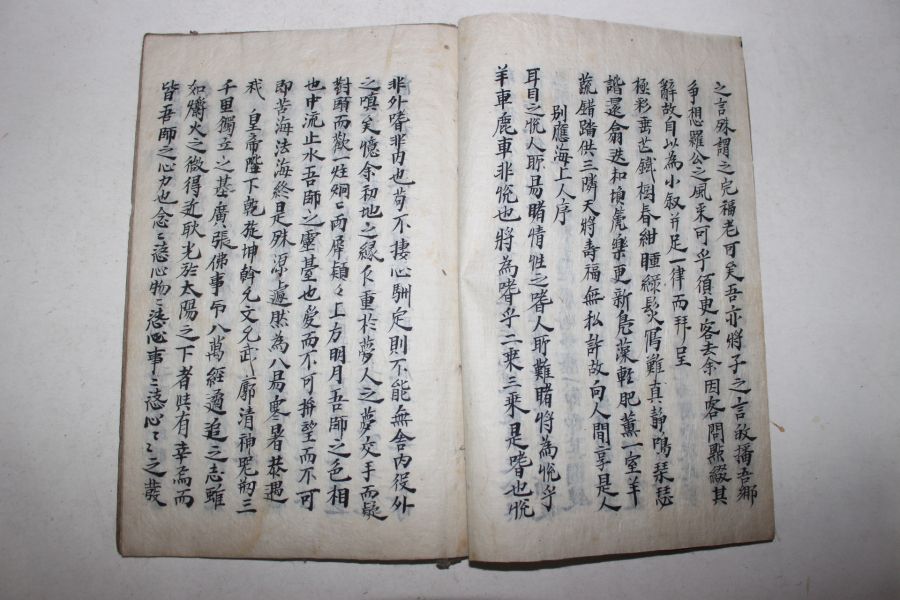 之言殊謂之完福老可矣吾亦將子之言敀播吾鄉
爭想羅公之風采可乎須臾客去余因客問點綴其
辭故自以為小叙并足一律而拜呈
極彩垂芒鐵樹春紺瞳綠髮寫難真靜鳴琴瑟
諧還翕迭和塤箎樂更新鳧藻輕肥薰一室羊
蔬錯踏供三隣天將壽福無私許故向人間享是人
別應海上人序
耳目之悅人所易睹情性之嗜人所難睹將為悅乎
羊車鹿車非悅也將為嗜乎二乘三乘是嗜也悅
非外嗜非內也苟不捿心馴定則不能無舍內役外
之嗔矣憶余初地之緣不重於夢人之夢交手而疑
對頭而歡一炷烱〻兩犀穎〻上方明月吾師之色相
也中流止水吾師之靈臺也愛而不可拚望而不可
即苦海法海終是殊源遽然為八易寒暑恭遇
我 皇帝陛下乾旋坤斡允文允武 廓清神甸三
千里獨立之基廣張佛事帀八萬經適追之志雖
如爝火之微得近耿光於太陽之下者共有幸焉而
皆吾師之心力也念〻慈心物〻慈心事〻慈心〻〻之發